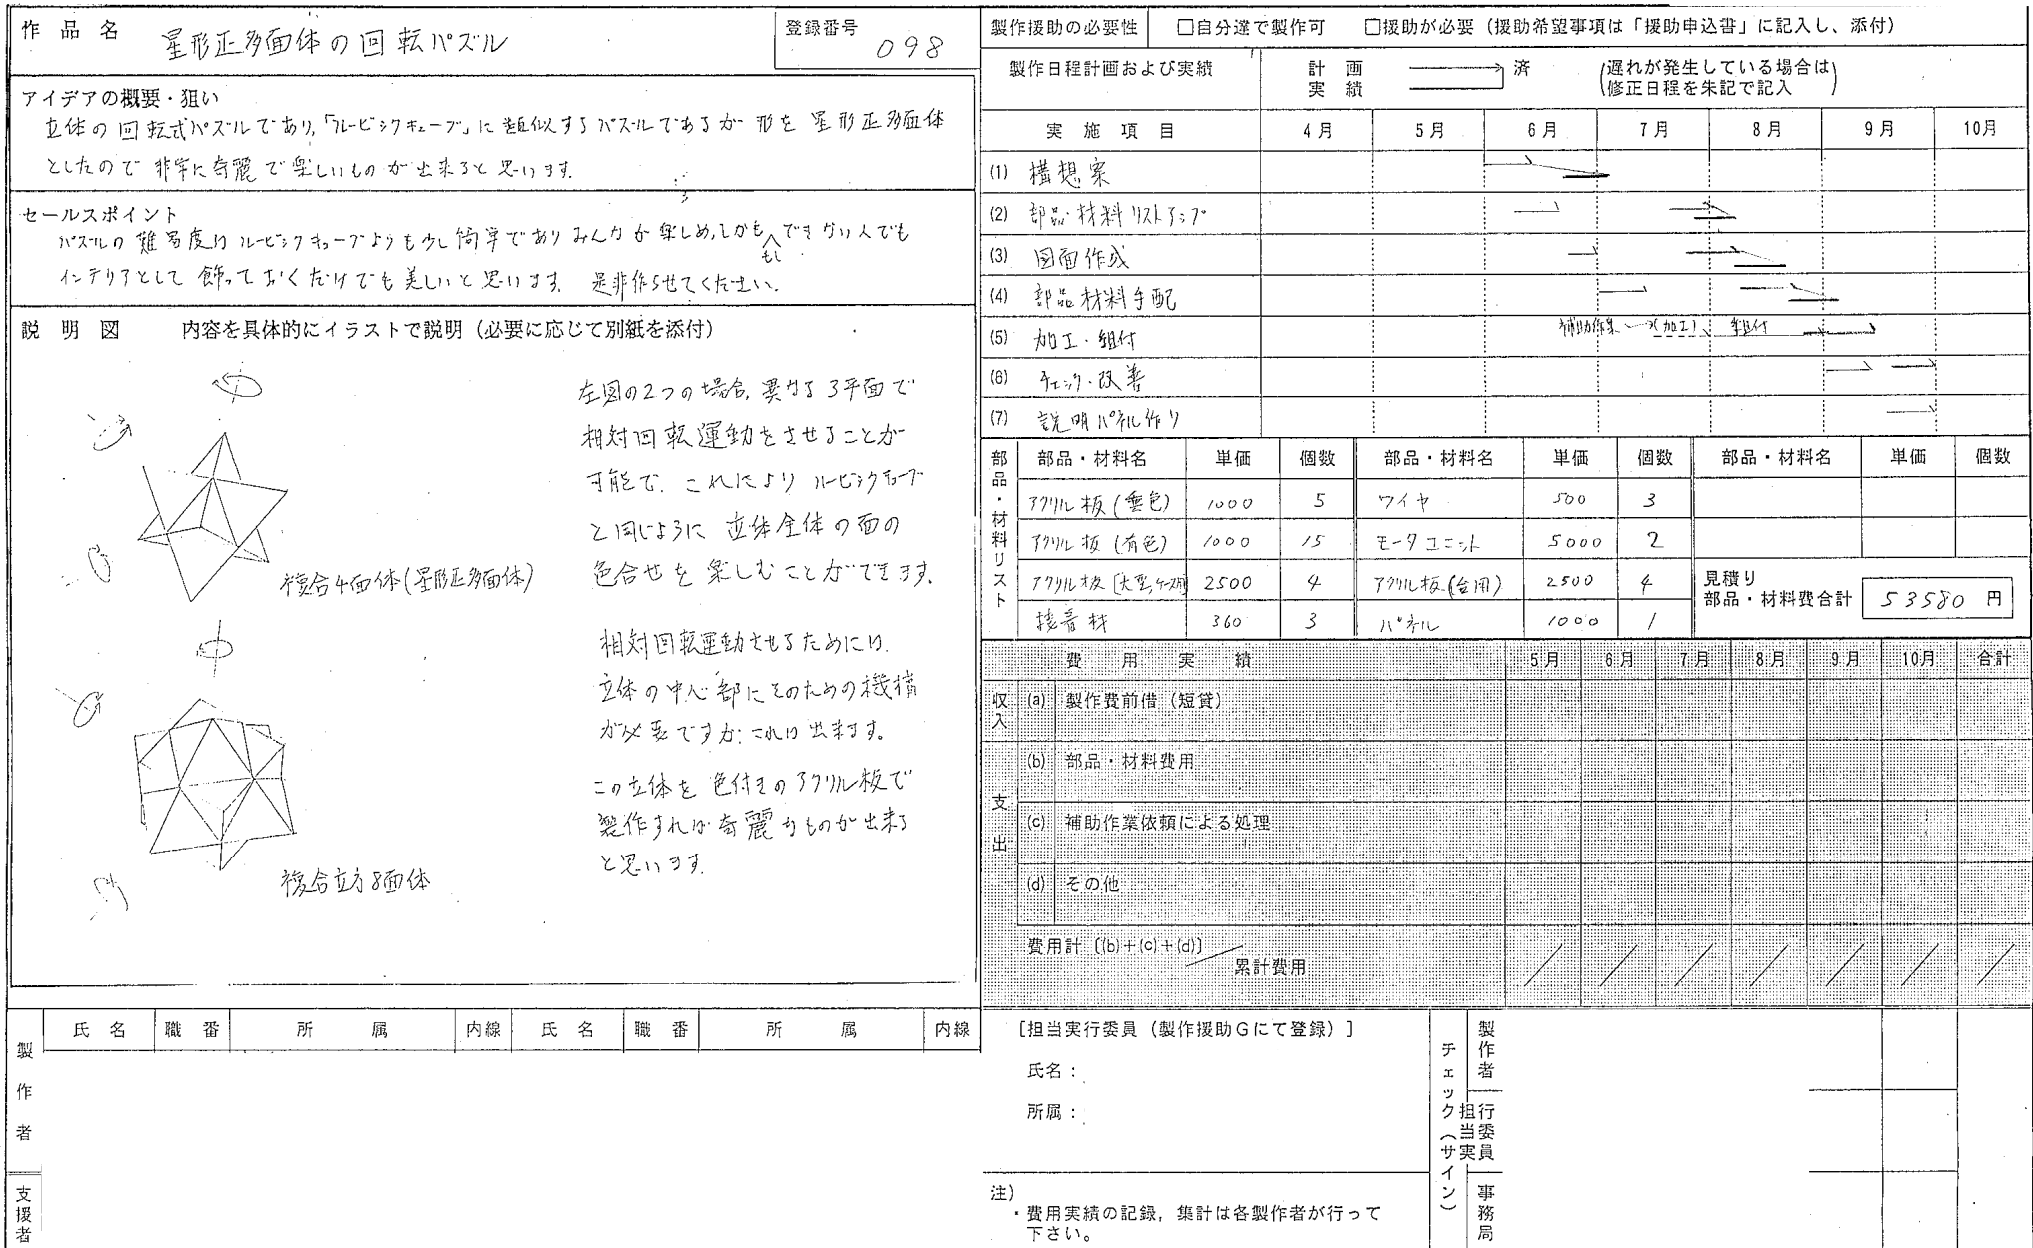 作品名 星形正多面体の回転パズル
登録番号 098
アイデアの概要・狙い
立体の回転式パズルであり、「ルービックキューブ」に類似するパズルであるが 形を 星形正多面体
としたので 非常に奇麗で楽しいものが出来ると思います。
セールスポイント
パズルの難易度はルービックキューブよりも少し簡単でありみんなが楽しめ、しかももしできない人でも
インテリアとして 飾っておくだけでも美しいと思います。是非作らせてください。
説明図 内容を具体的にイラストで説明(必要に応じて別紙を添付)
左図の2つの場合、異なる3平面で
相対回転運動をさせることが
可能で、これにより ルービックキューブ
と同じように 立体全体の面の
色合せを楽しむことができます。
複合4面体(星形正多面体)
相対回転運動させるためには
立体の中心部にそのための機構
が必要ですが、これは出来ます。
この立体を 色付きのアクリル板で
製作すれば奇麗なものが出来る
と思います。
複合立方8面体
製作援助の必要性 □自分達で製作可 □援助が必要(援助希望事項は「援助申込書」に記入し、添付)
製作日程計画および実績 計画 実績 済 (遅れが発生している場合は
修正日程を朱記で記入)
実施項目 4月 5月 6月 7月 8月 9月 10月
(1) 構想案
(2) 部品・材料リストアップ
(3) 図面作成
(4) 部品材料手配
(5) 加工・組付 補助作業 (加工) 組付
(6) チェック・改善
(7) 説明パネル作り
部品・材料リスト
部品・材料名 単価 個数 部品・材料名 単価 個数 部品・材料名 単価 個数
アクリル板(無色) 1000 5 ワイヤ 500 3
アクリル板(有色) 1000 15 モータユニット 5000 2
アクリル板(大型、ケース用) 2500 4 アクリル板(台用) 2500 4
接着材 360 3 パネル 1000 1
見積り
部品・材料費合計 53580 円
費用実績 5月 6月 7月 8月 9月 10月 合計
収入 (a) 製作費前借(短貸)
支出 (b) 部品・材料費用
(c) 補助作業依頼による処理
(d) その他
費用計〔(b)+(c)+(d)〕
累計費用
製作者 氏名 職番 所属 内線 氏名 職番 所属 内線
支援者
[担当実行委員(製作援助Gにて登録)]
氏名:
所属:
注)
・費用実績の記録,集計は各製作者が行って
下さい。
チェック(サイン)
製作者
担当実行委員
事務局